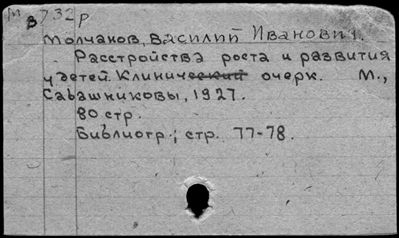 М
в732р
Молчанов, Василий Иванович.
Расстройства роста и развития
у детей. Клинический очерк. М.,
Сабашниковы, 1927.
80 стр.
Библиогр.; стр. 77-78.